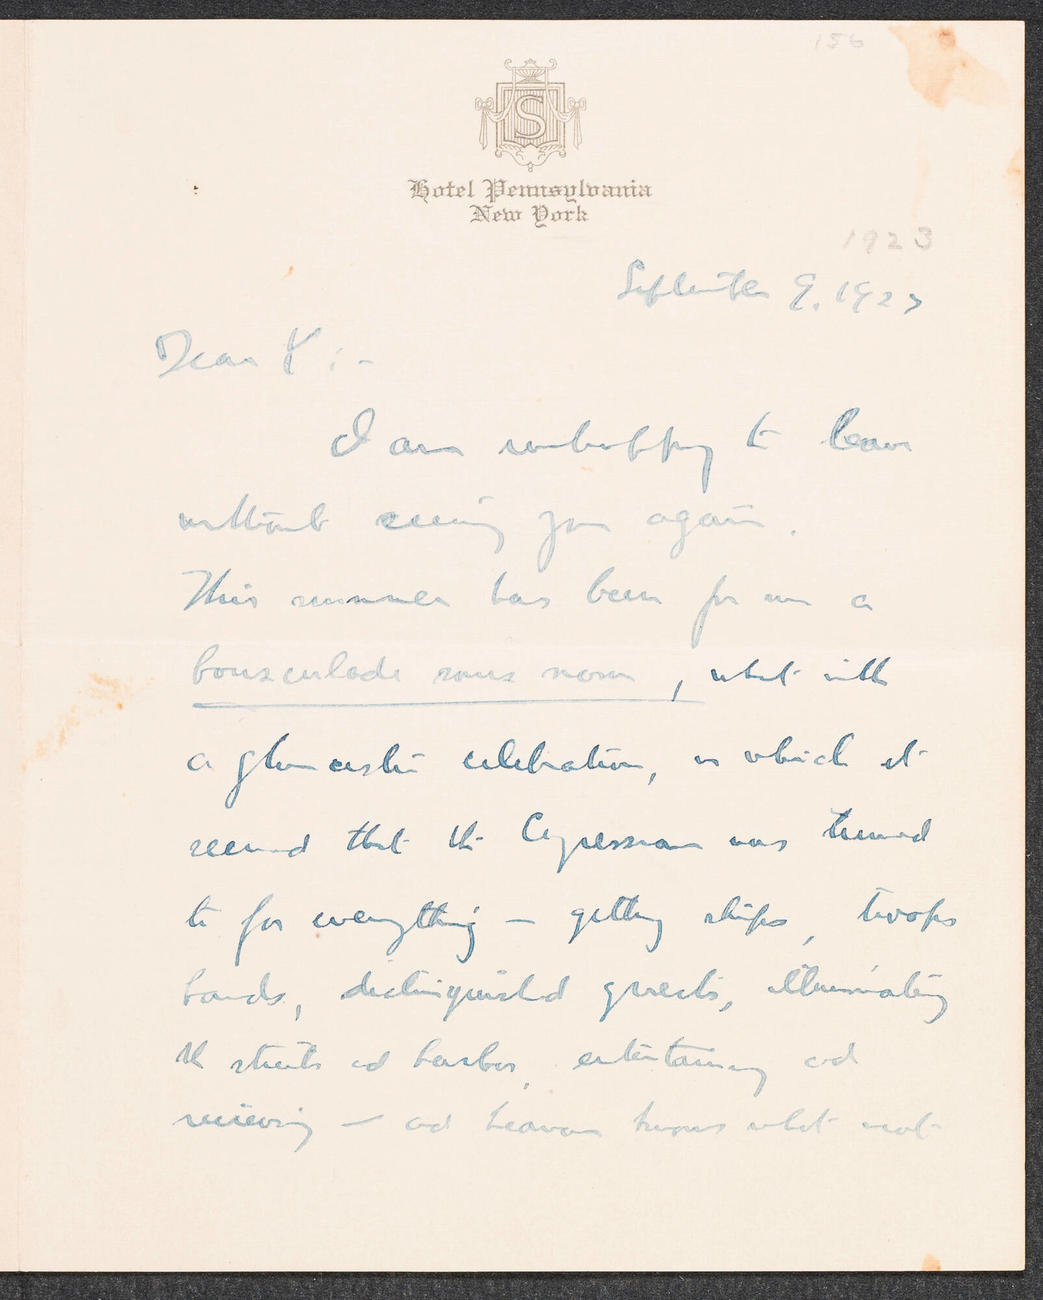 156
S
Hotel Pennsylvania
New York
1923
September 9. 1923
Dear Y:-
I am unhappy to leave
without seeing you again.
This summer has been for me a
bousculade sans nom, what with
a Gloucester celebration, in which it
seemed that the Congressman was turned
to for everything — getting ships, troops
bands, distinguished guests, illuminating
the streets and harbor, entertaining and
reviewing — and heaven knows what not